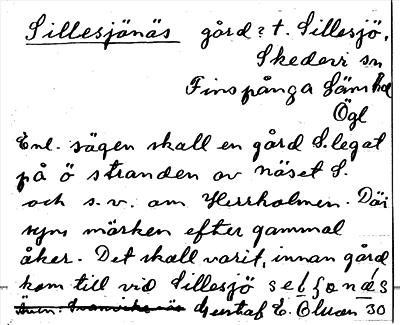 Sillesjönäs gård? t. Sillesjö,
Skedevi sn
Finspånga läns hd
Ögl
Enl. sägen skall en gård S. legat
på ö stranden av näset S.
och s.v. om Herrholmen. Där
syns märken efter gammal
åker. Det skall varit, innan gård
kom till vid Sillesjö
Gustaf E. Bluan 30